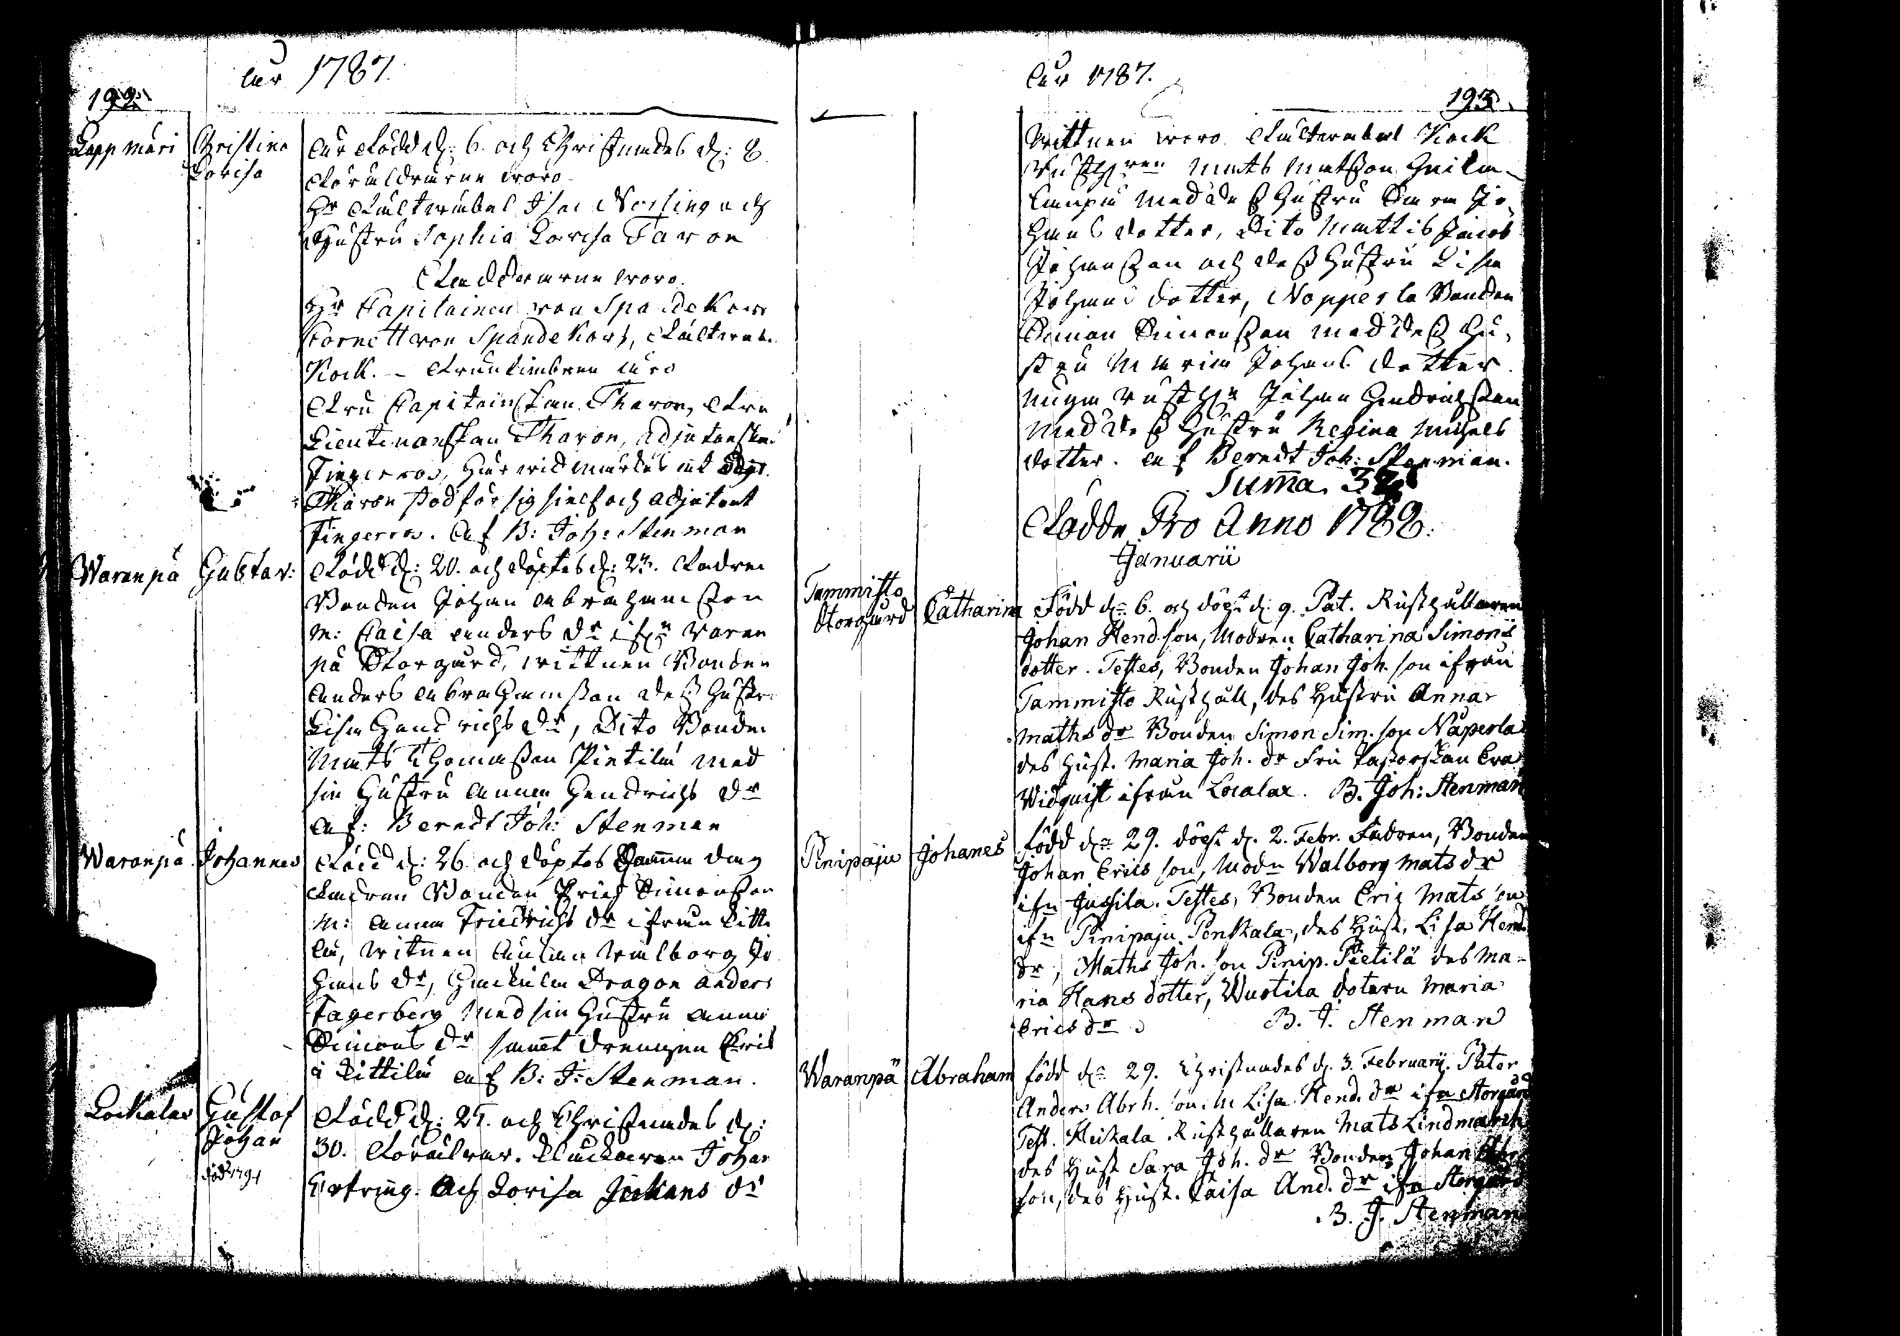 192.
Åhr 1787.
Lappmäri Christina Lovisa
Är Född d: 6. och Christnades d: 8.
Föräldrarne woro
Hr Fältwäbel Isac Norling och
Hustru Sophia Lovisa Taron
Fadderarne woro
Hr Capitainen von Spandekow
Cornett von Spandekow, Fältwäb.
Kock. - Fruntimbren äro
Fru Capitainskan Tharon, Fru
Lieutenanskan Tharon, Adjutanskan
Fingerros, här wid märkes at Capt.
Tharon stod för sig sielf och Adjutant
Fingerros. Af B: Joh: Stenman
Waranpä Gustav:
Född d: 20. och döptes d: 23. Fadren
Bonden Johan Abrahamsson
M: Caisa Anders dr ifrn Waran
pä Storgård, wittnen Bonden
Anders Abrahamsson dess Hustr.
Lisa Hendrichs dr, Dito Bonden
Mats Thomasson Pietilä med
sin Hustru Anna Hendrichs dr
Af: Berndt Joh: Stenman
Waranpä Johannes
Född d: 26. och döptes samma dag
Fadren Bonden Erich Simonsson
M: Anna Friedrichs dr ifrån Titti
lä, witnen Walborg Jo
hans dr, Dragon Anders
Fagerberg med sin Hustru Anna
Simons dr samt drengen Eric
i Tittilä af B: J: Stenman.
Lockalax Gustof Johan
död 1791
Född d: 27. och Christnades d:
30. Föräldrar. Klockaren Johan
och Lovisa Johans dr
Åhr 1787.
193.
Wittnen woro Fältwäbel Kock
Rusthren Mats Matsson
med dess Hustru Sara Jo
hans dotter, Dito Mattis
Johansson och dess Hustru Lisa
Johans dotter, Nopperla Bonden
Simon Simonsson med dess Hu
stru Maria Johans dotter.
unga Rusthn Johan Hendrichsson
med dess Hustru Regina Michels
dotter. af Berndt Joh: Stenman.
Summa. 32
Födde Pro Anno 1788.
Januarii
Tammisto Storgård Catharina
Född dn 6. och döpt d: 9. Pat. Rusthållaren
Johan Hend. son, Modren Catharina Simons
dotter. Testes, Bonden Johan Joh. son ifrån
Tammisto Rusthåll, des Hustru Anna
Maths dr Bonden Simon Sim. son Näperla
des Hust. Maria Joh. dr Fru Pastorskan Eva
Widquist ifrån Localax. B. Joh: Stenman
Pinipaju Johanes
född dn 29. döpt d. 2. Febr. Fadren, Bonden
Johan Erics son, Modn Walborg Mats dr
ifn Jussila. Testes, Bonden Eric Mats son
ifn Pinipaju Penkkala, des Hust. Lisa Hend.
dr, Maths Joh. son Pinip. Pietilä des Ma-
ria Hans dotter, Wuotila dotern Maria
Erics dr
B. J. Stenman
Waranpä Abraham
född dn 29. Christnades d. 3. Februarij. Pater
Anders Abrh. son. M Lisa Hend. dr ifn Storgård
Test. Heikala Rusthållaren Mats Lindmarck
des Hust Sara Joh. dr Bonden Johan Abr.
son, des Hust. Caisa And. dr ifn Storgård
B. J. Stenman